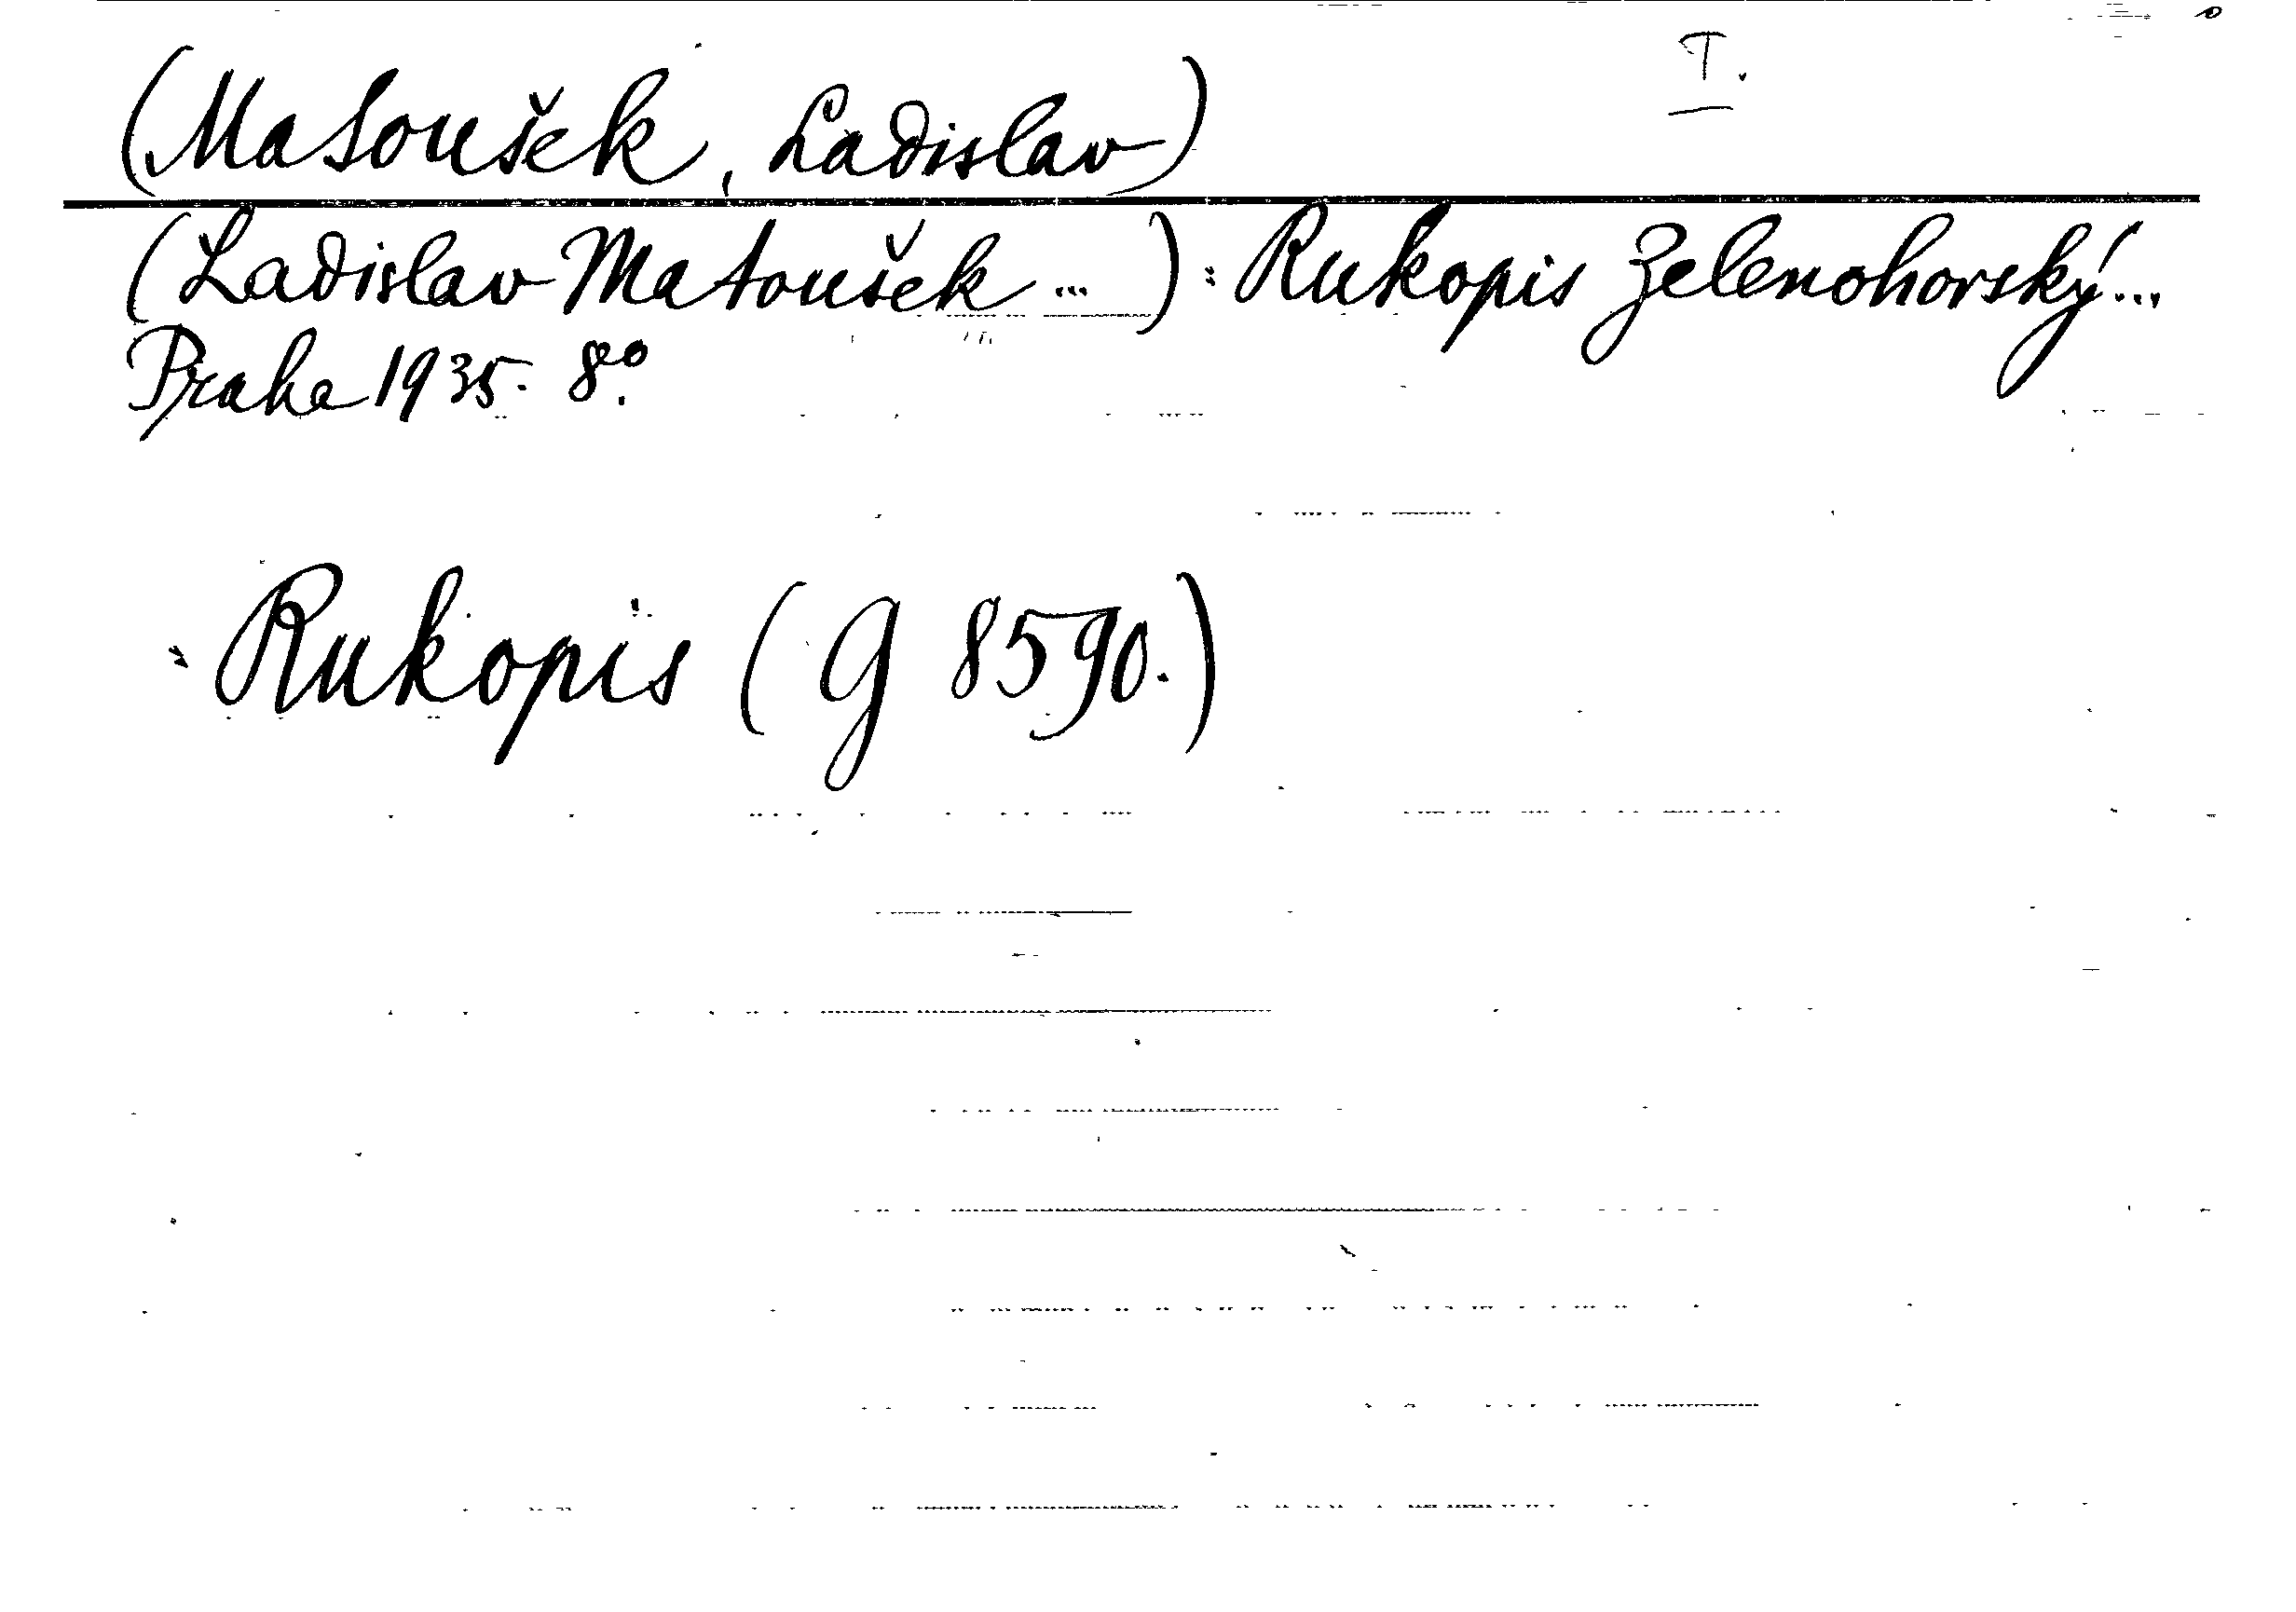 (Matoušek, Ladislav) I.
(Ladislav Matoušek ...): Rukopis Zelenohorský...
Praha 1935. 8°.
Rukopis (G 8590.)